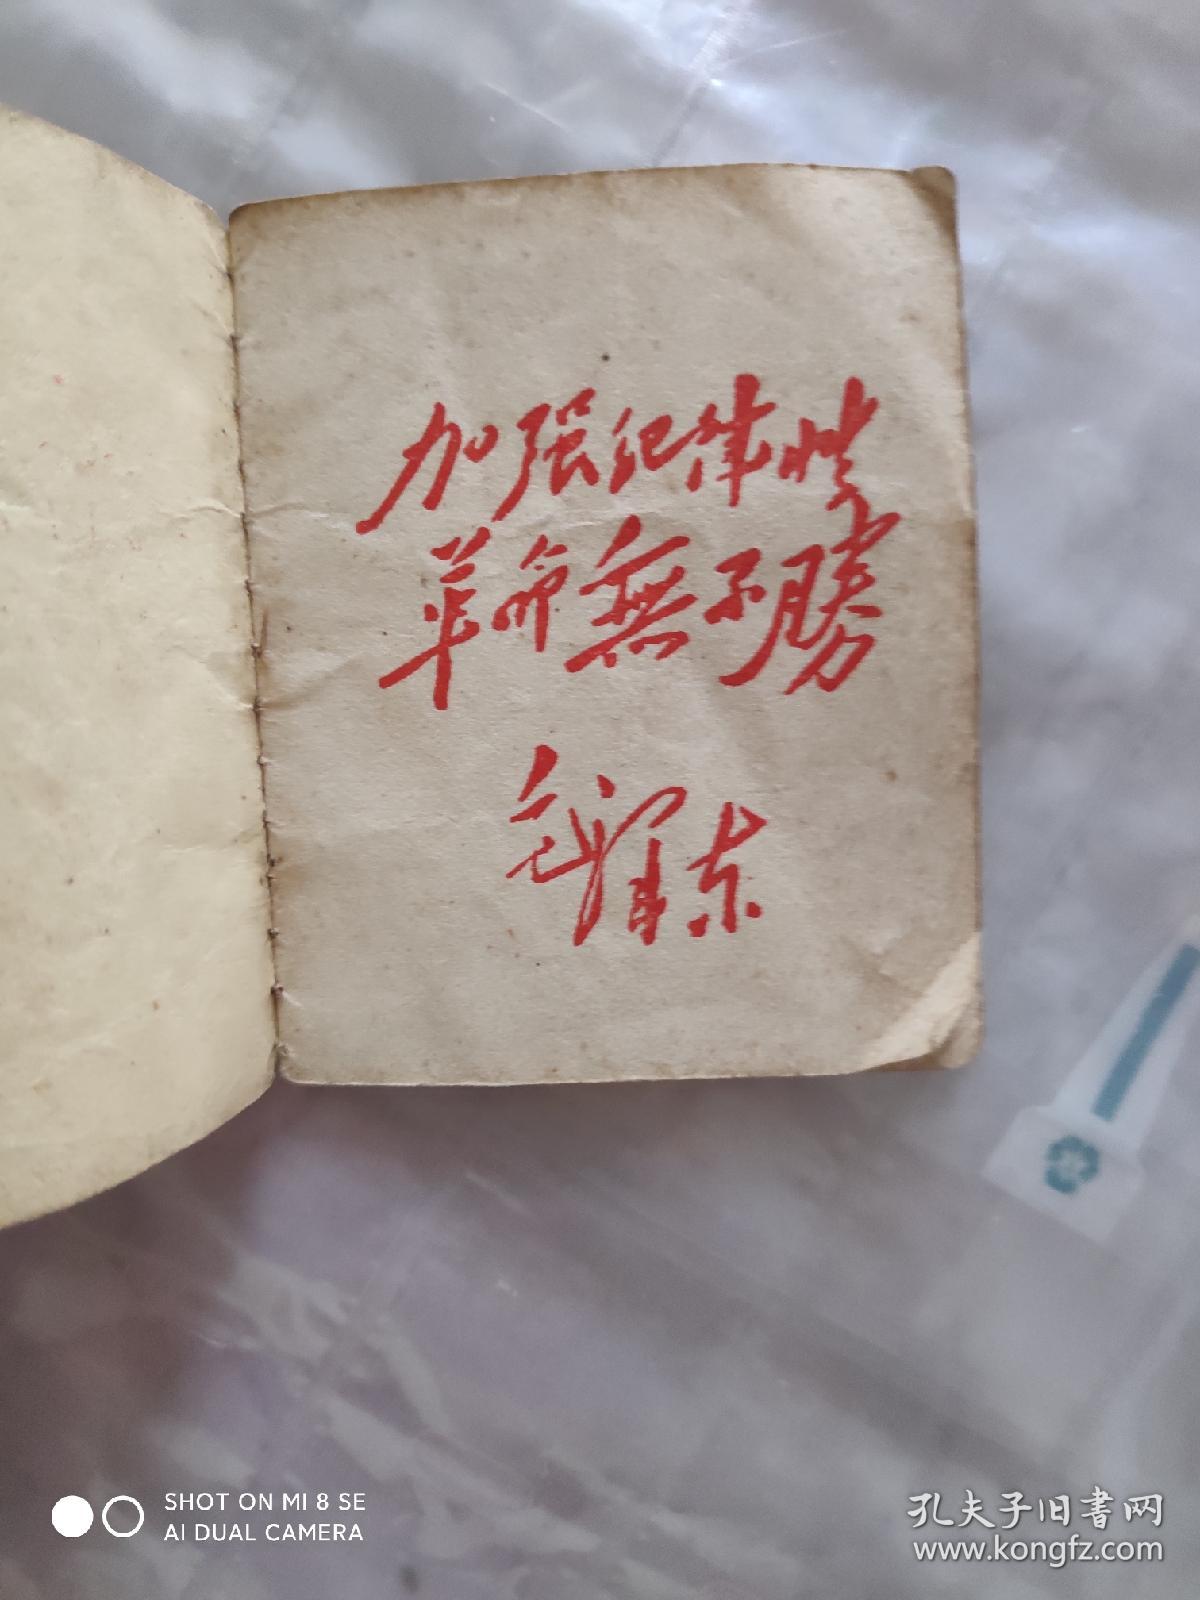 加强纪律性
革命無不勝
毛泽东
SHOT ON MI 8 SE
AI DUAL CAMERA
孔夫子旧书网
www.kongfz.com